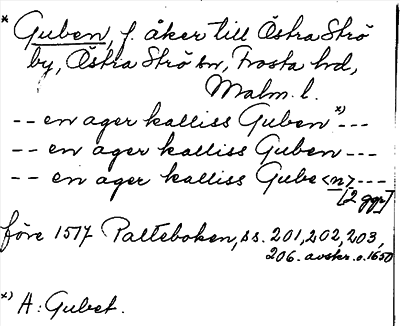 * Guben, f. åker till Östra Strö
by, Östra Strö sn, Frosta hd,
Malm. l.
-- en ager kalliss Guben x) ---
-- en ager kalliss Guben ---
-- en ager kalliss Gube<n> ----
[2 ggr]
före 1517 Palteboken, ss. 201, 202, 203,
206. avskr. o. 1650
x) A: Gubet.